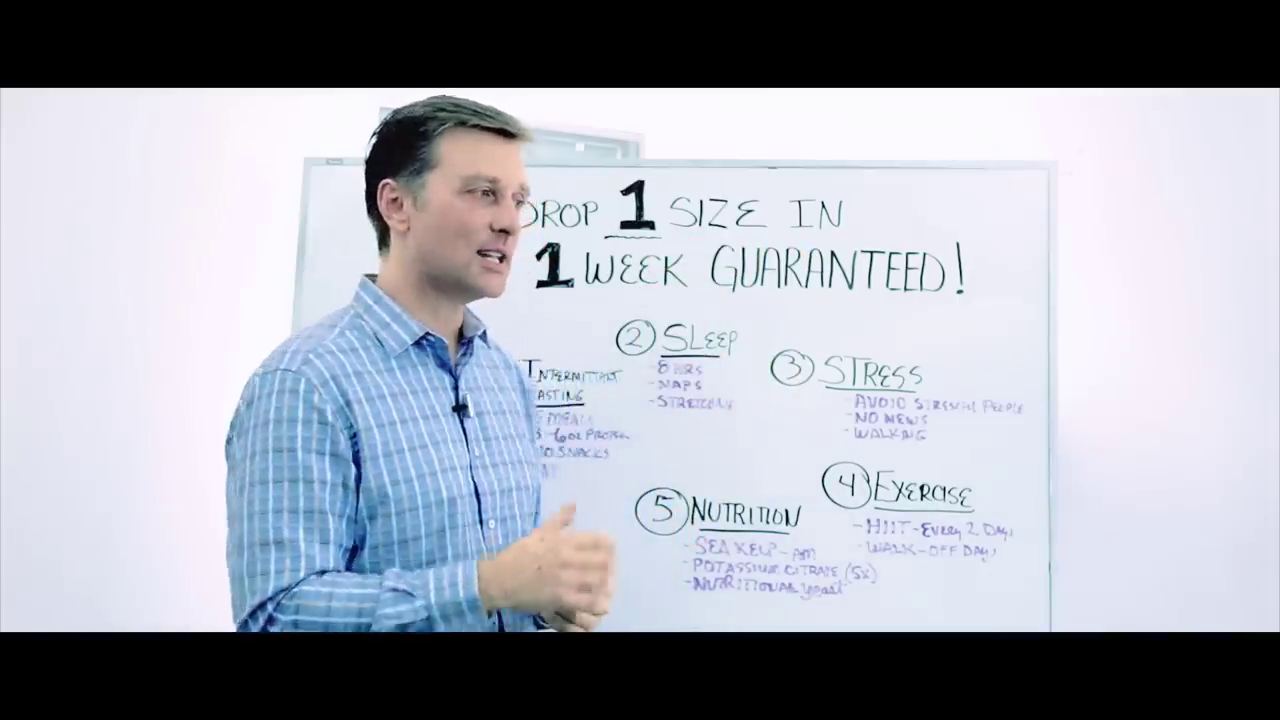 DROP 1 SIZE IN
1 WEEK GUARANTEED!
INTERMITTENT
ASTING
MEALS
6oz PROTEIN
O SNACKS
2 SLEEP
- 8 HRS
- NAPS
- STRETCHING
3 STRESS
- AVOID STRESSFUL PEOPLE
- NO NEWS
- WALKING
4 EXERCISE
- HIIT - EVERY 2 DAYS
- WALK - OFF DAYS
5 NUTRITION
- SEA KELP - AM
- POTASSIUM CITRATE (5x)
- NUTRITIONAL yeast